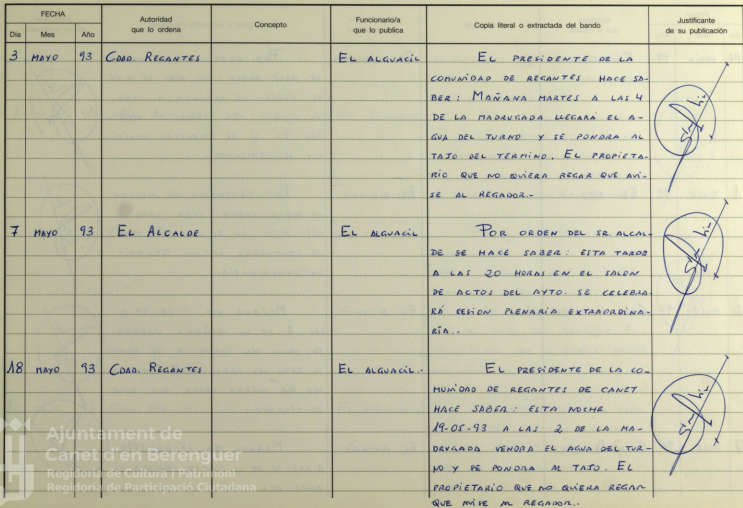 FECHA
Día Mes Año
Autoridad
que lo ordena
Concepto
Funcionario/a
que lo publica
Copia literal o extractada del bando
Justificante
de su publicación
3 MAYO 93 CDAD. REGANTES EL ALGUACIL EL PRESIDENTE DE LA
COMUNIDAD DE REGANTES HACE SA-
BER: MAÑANA MARTES A LAS 4
DE LA MADRUGADA LLEGARÁ EL A-
GUA DEL TURNO Y SE PONDRA AL
TAJO DEL TERMINO. EL PROPIETA-
RIO QUE NO QUIERA REGAR QUE AVI-
SE AL REGADOR.-
7 MAYO 93 EL ALCALDE EL ALGUACIL POR ORDEN DEL SR ALCAL-
DE SE HACE SABER: ESTA TARDE
A LAS 20 HORAS EN EL SALON
DE ACTOS DEL AYTO. SE CELEBRA-
RÁ SESION PLENARIA EXTRAORDINA-
RÍA.-
18 MAYO 93 CDAD. REGANTES EL ALGUACIL.- EL PRESIDENTE DE LA CO-
MUNIDAD DE REGANTES DE CANET
HACE SABER: ESTA NOCHE
19-05-93 A LAS 2 DE LA MA-
DRUGADA VENDRA EL AGUA DEL TUR-
NO Y SE PONDRA AL TAJO. EL
PROPIETARIO QUE NO QUIERA REGAR
QUE AVISE AL REGADOR.-
Ajuntament de
Canet d'en Berenguer
Regidoria de Cultura i Patrimoni
Regidoria de Participació Ciutadana